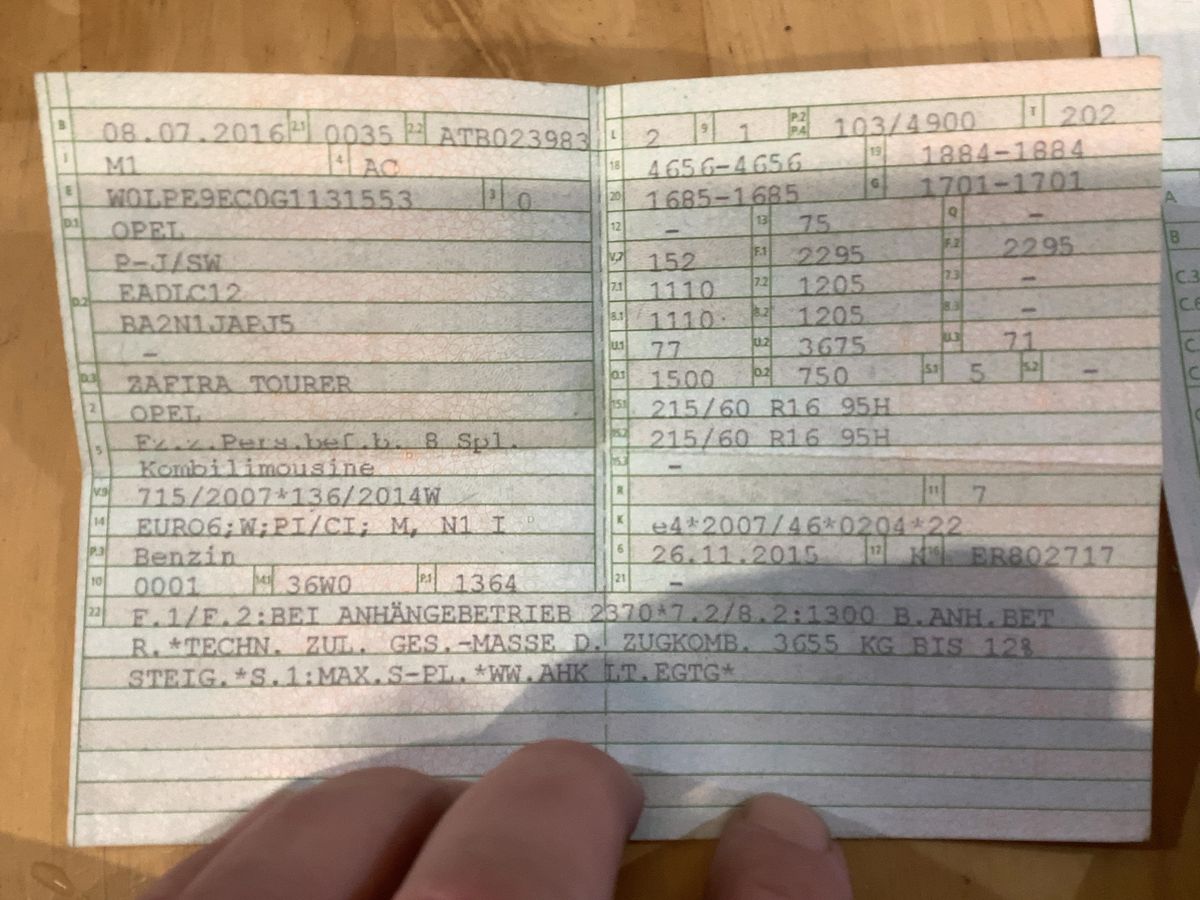 B 08.07.2016 2.1 0035 2.2 ATB023983
J M1 4 AC
E W0LPE9EC0G1131553 3 0
D.1 OPEL
D.2 P-J/SW
EADLC12
BA2N1JAPJ5
-
D.3 ZAFIRA TOURER
2 OPEL
5 Fz.z.Pers.bef.b. 8 Spl.
Kombilimousine
V.9 715/2007*136/2014W
14 EURO6;W;PI/CI; M, N1 I
P.3 Benzin
10 0001 14.1 36W0 P.1 1364
L 2 9 1 P.2 P.4 103/4900 T 202
18 4656-4656 19 1884-1884
20 1685-1685 G 1701-1701
12 - 13 75 Q -
V.7 152 F.1 2295 F.2 2295
7.1 1110 7.2 1205 7.3 -
8.1 1110 8.2 1205 8.3 -
U.1 77 U.2 3675 U.3 71
O.1 1500 O.2 750 S.1 5 S.2 -
15.1 215/60 R16 95H
15.2 215/60 R16 95H
15.3 -
R 11 7
K e4*2007/46*0204*22
6 26.11.2015 17 K 16 ER802717
21 -
22 F.1/F.2:BEI ANHÄNGEBETRIEB 2370*7.2/8.2:1300 B.ANH.BET
R.*TECHN. ZUL. GES.-MASSE D. ZUGKOMB. 3655 KG BIS 12%
STEIG.*S.1:MAX.S-PL.*WW.AHK LT.EGTG*
A
B
C.3
C.6
C.
C